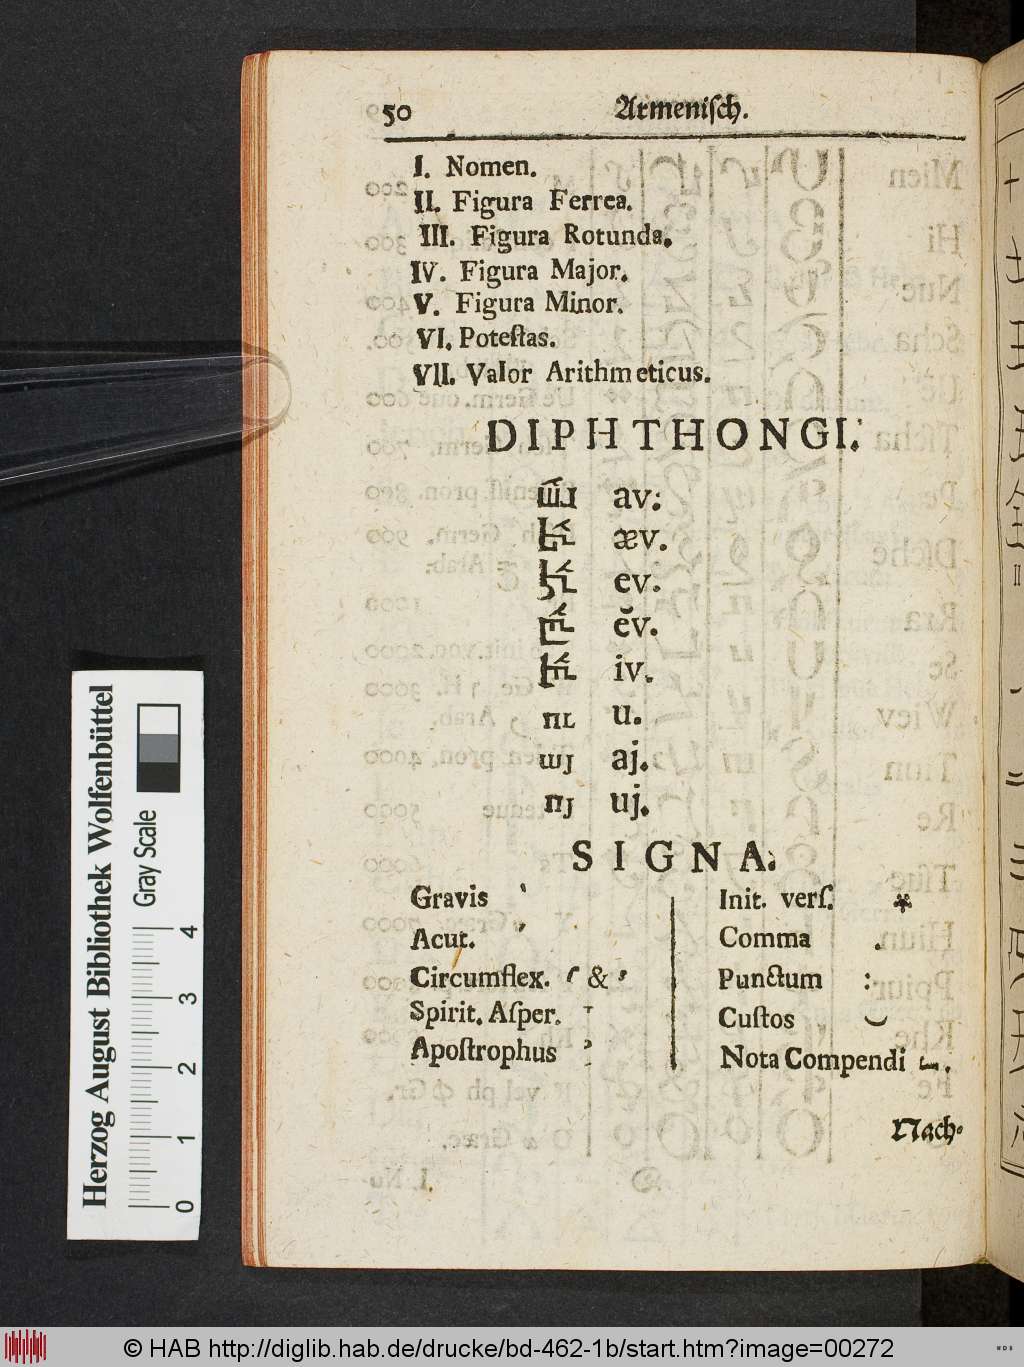 50 Armeniſch.
I. Nomen.
II. Figura Ferrea.
III. Figura Rotunda.
IV. Figura Major.
V. Figura Minor.
VI. Poteſtas.
VII. Valor Arithmeticus.
DIPHTHONGI:
av:
æv.
ev.
ĕv.
iv.
ու u.
այ aj.
ոյ uj.
SIGNA.
Gravis ˋ
Acut. ˊ
Circumflex. &
Spirit. Aſper.
Apoſtrophus
Init. verſ.
Comma .
Punctum :
Cuſtos
Nota Compendi
Nach-
Herzog August Bibliothek Wolfenbüttel
Gray Scale
0 1 2 3 4
© HAB http://diglib.hab.de/drucke/bd-462-1b/start.htm?image=00272